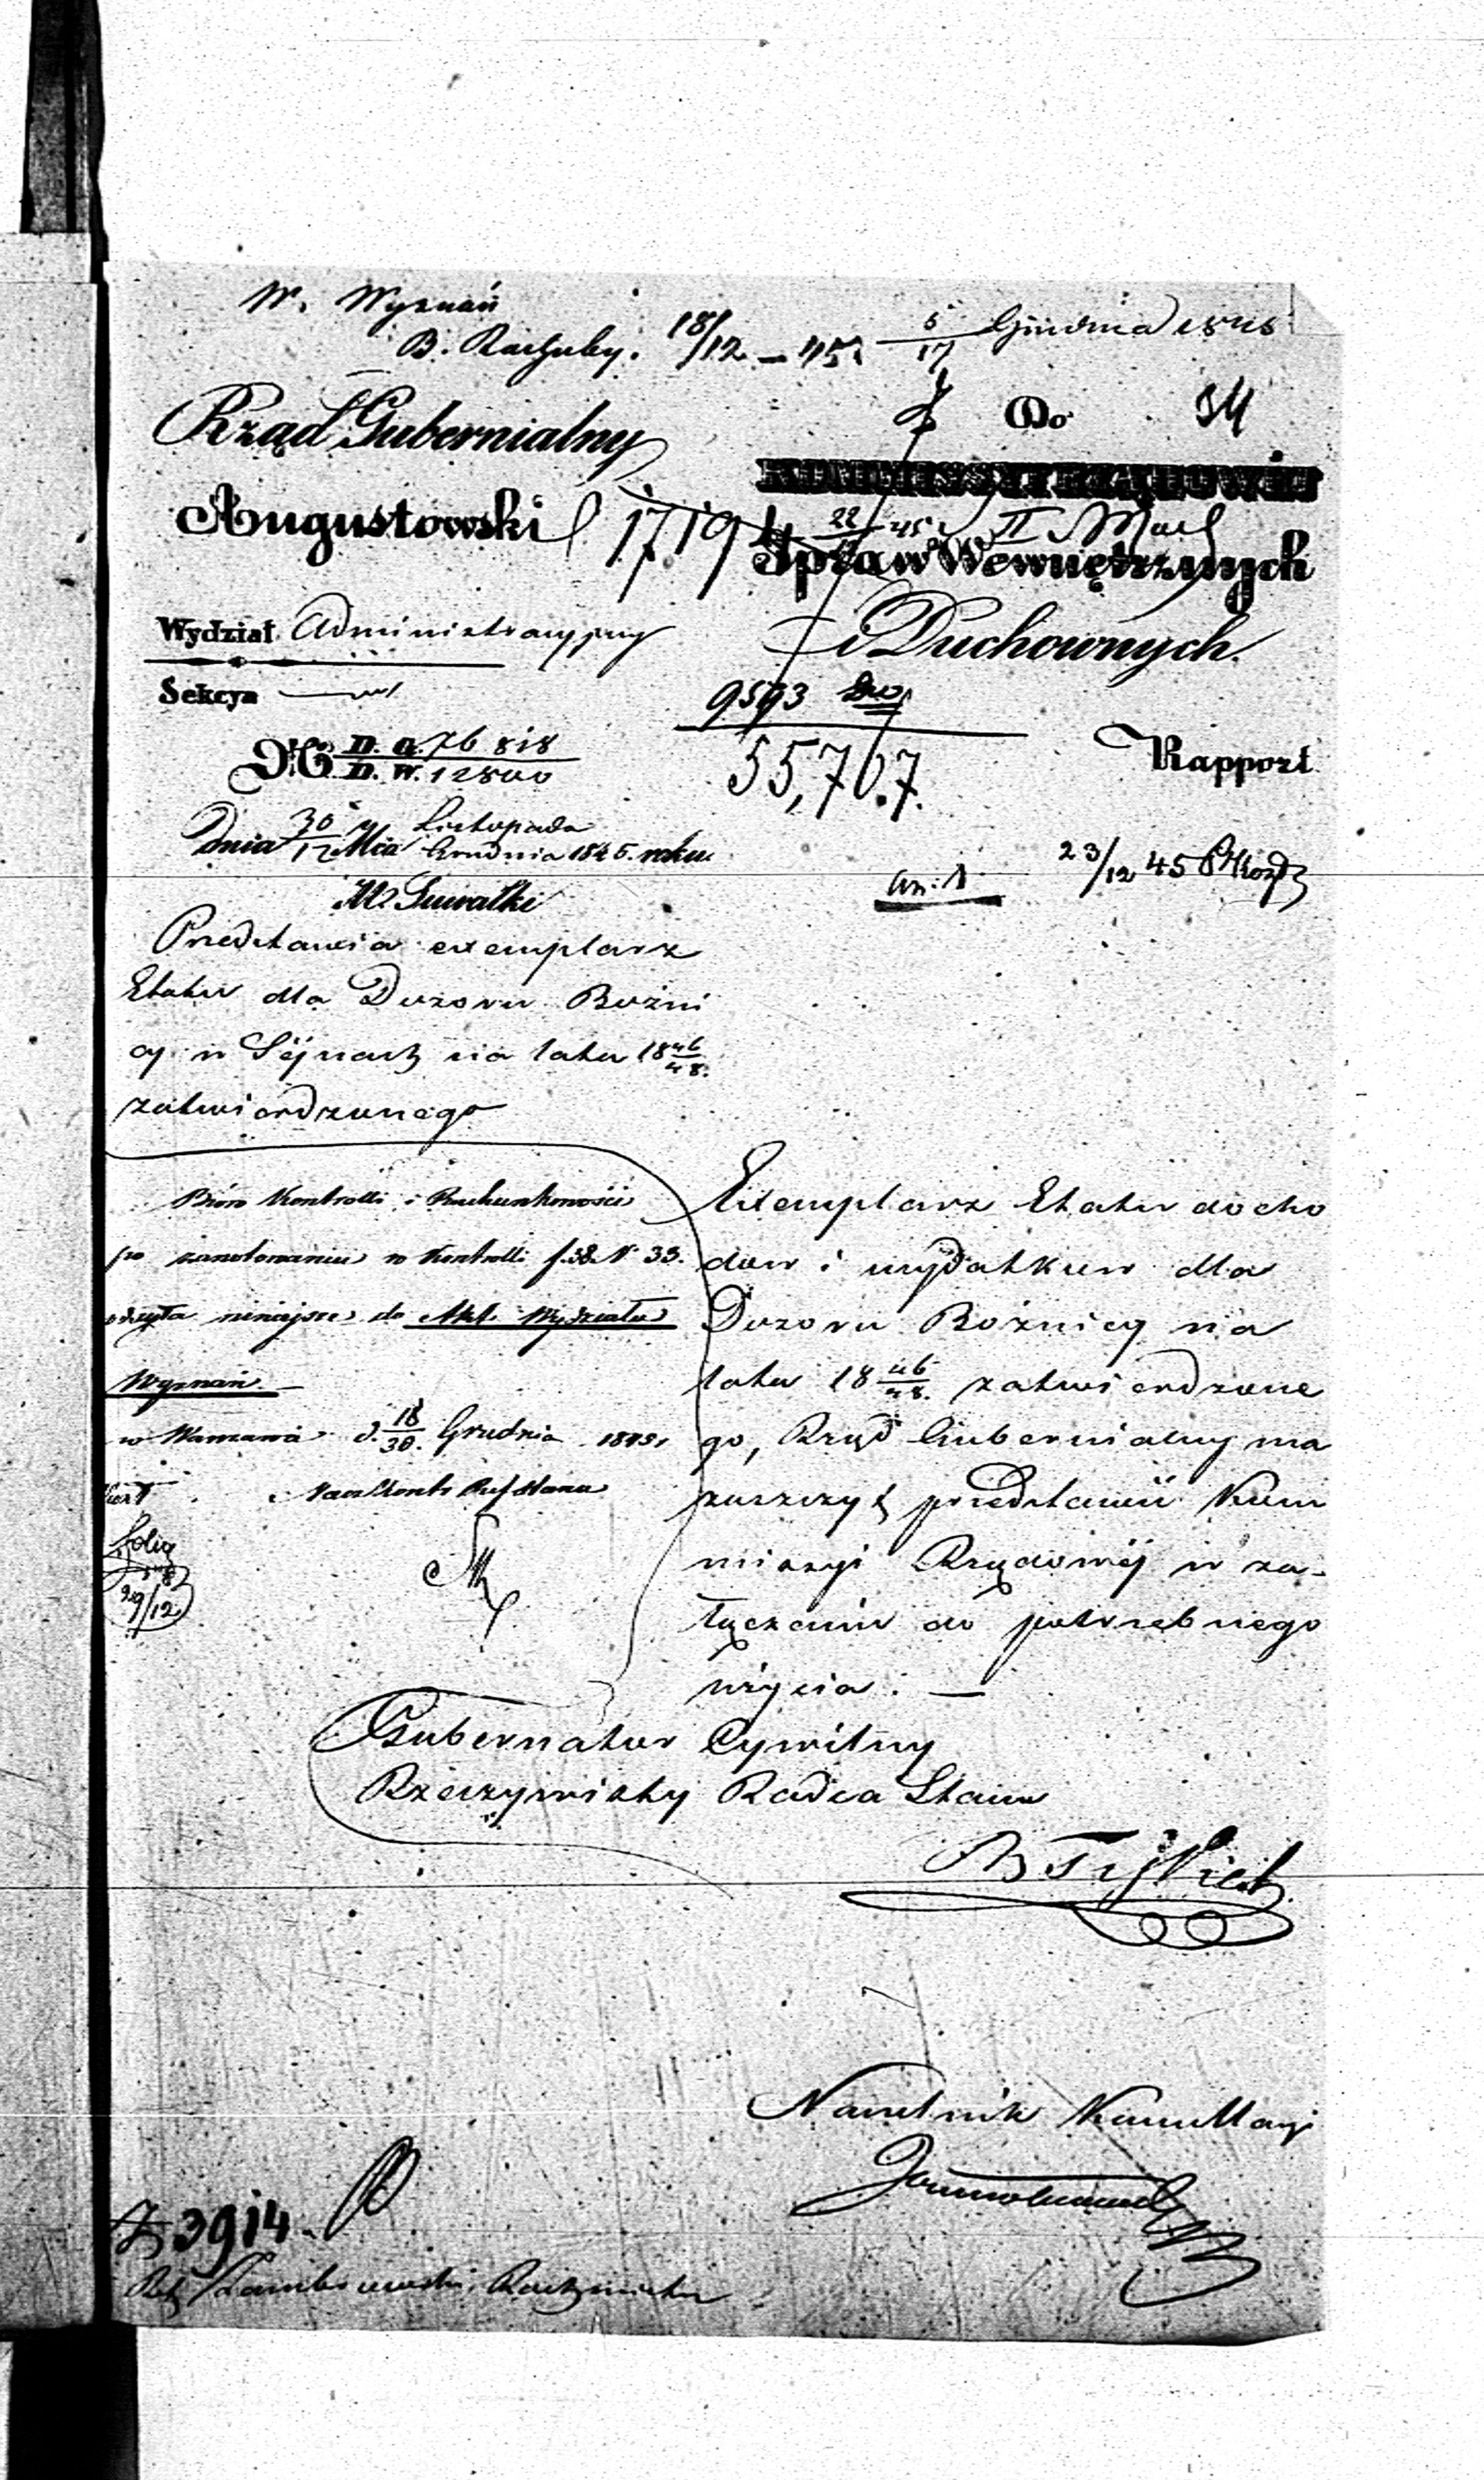 W. Wyznań
B. Rachuby. 18/12 – 45
5/17 Grudnia 1845
Do 34
Rząd Gubernialny
KOMMISSYI RZĄDOWÉJ
Augustowski
1719
22/12 45 II
Spraw Wewnętrznych
Wydział Administracyjny
i Duchownych.
Sekcya
9593
№ D. G. 76818
D. W. 12800
55,767.
Rapport
Dnia 30/12 Mca Listopada
Grudnia 1845. roku
23/12 45
W Suwałki
an: 1
Przedstawia exemplarz
Etatu dla Dozoru Bożni
cy w Sejnach na lata 18 46/48.
zatwierdzonego
Biuro Kontrolli i Rachunkowości
po zanotowaniu w Kontrolli f. 38. N. 33.
odsyła niniejsze do Akt Wydziału
Wyznań. –
w Warszawie d. 18/30. Grudnia 1845 r
29/12
Exemplarz Etatu docho
dow i wydatkow dla
Dozoru Bożnicy na
lata 18 46/48. zatwierdzone
go, Rząd Gubernialny ma
zaszczyt przedstawić Kom
missyi Rządowéj w za-
łączeniu do potrzebnego
użycia. —
Gubernator Cywilny
Rzeczywisty Radca Stanu
Naczelnik Kancellaryi
3914.